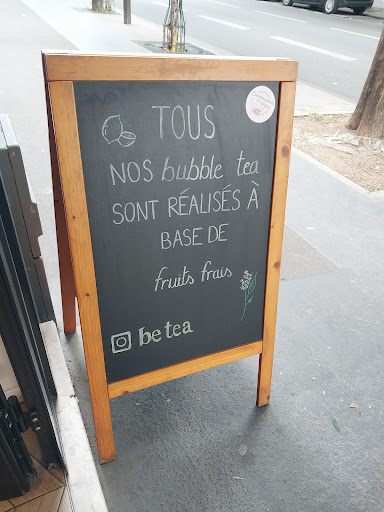 TOUS
NOS bubble tea
SONT RÉALISÉS À
BASE DE
fruits frais
be tea